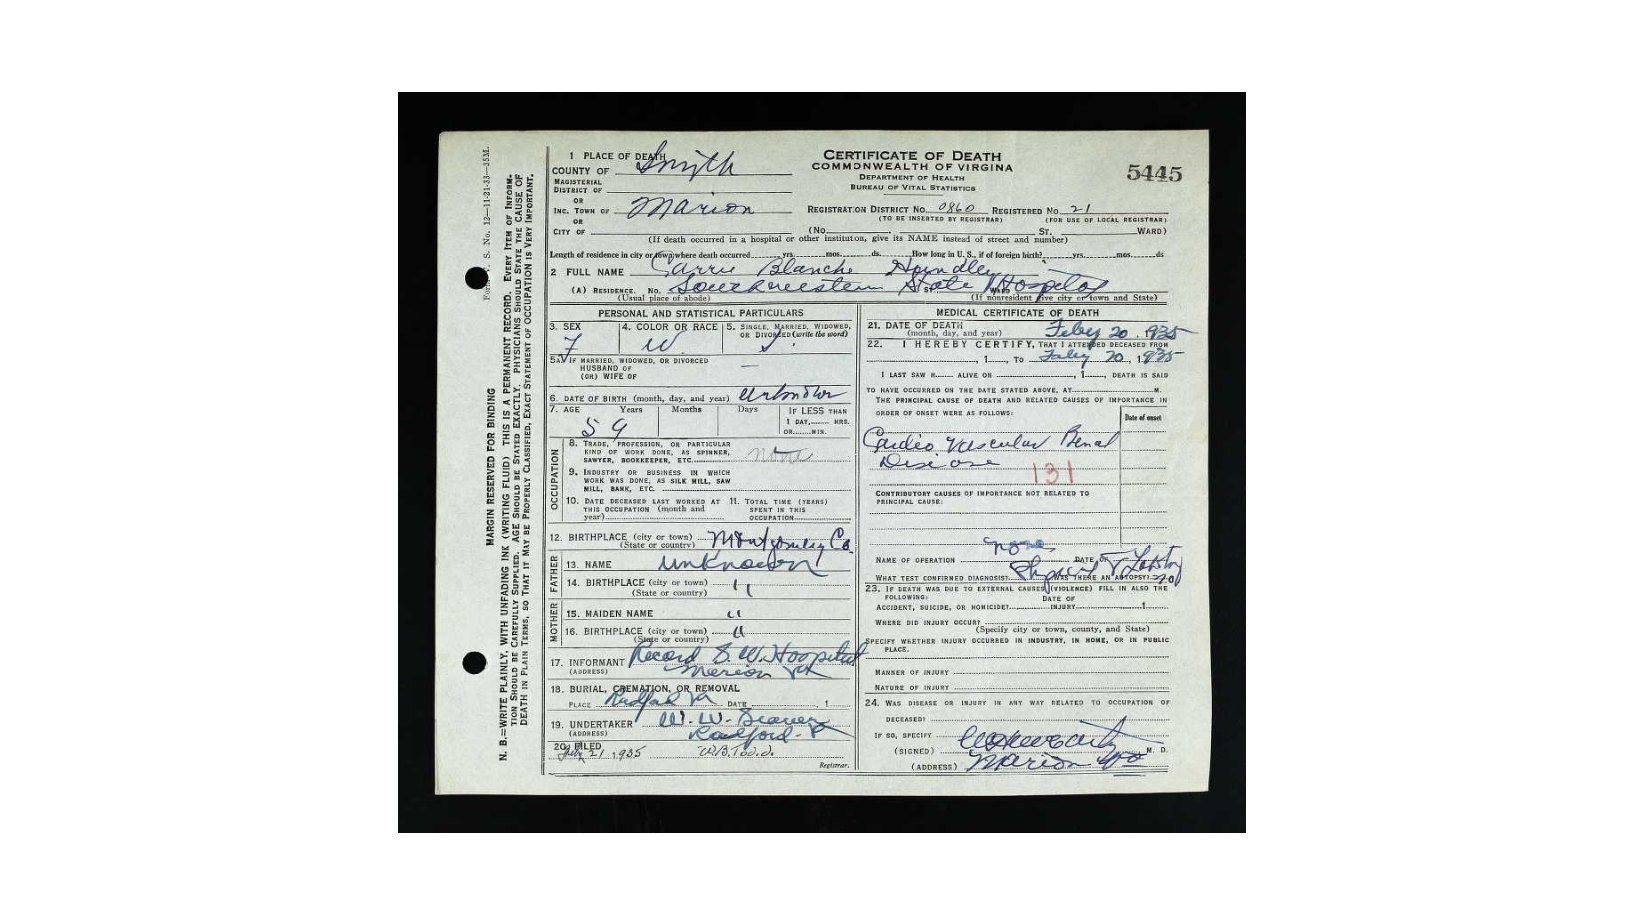 Form V. S. No. 12—11-21-33—35M.
MARGIN RESERVED FOR BINDING
N. B.—WRITE PLAINLY, WITH UNFADING INK (WRITING FLUID) THIS IS A PERMANENT RECORD. EVERY ITEM OF INFORM-
TION SHOULD BE CAREFULLY SUPPLIED. AGE SHOULD BE STATED EXACTLY. PHYSICIANS SHOULD STATE THE CAUSE OF
DEATH IN PLAIN TERMS, SO THAT IT MAY BE PROPERLY CLASSIFIED. EXACT STATEMENT OF OCCUPATION IS VERY IMPORTANT.
CERTIFICATE OF DEATH
COMMONWEALTH OF VIRGINIA
DEPARTMENT OF HEALTH
BUREAU OF VITAL STATISTICS
5445
1 PLACE OF DEATH
COUNTY OF Smyth
MAGISTERIAL
DISTRICT OF
OR
INC. TOWN OF Marion
OR
CITY OF
REGISTRATION DISTRICT NO. 0860 REGISTERED NO. 21
(TO BE INSERTED BY REGISTRAR) (FOR USE OF LOCAL REGISTRAR)
(No. ST. WARD)
(If death occurred in a hospital or other institution, give its NAME instead of street and number)
Length of residence in city or town where death occurred yrs. mos. ds. How long in U. S., if of foreign birth? yrs. mos. ds
2 FULL NAME Carrie Blanche Handley
(A) RESIDENCE. No. Southwestern State Hospital ST. WARD
(Usual place of abode) (If nonresident give city or town and State)
PERSONAL AND STATISTICAL PARTICULARS
3. SEX F
4. COLOR OR RACE W.
5. SINGLE, MARRIED, WIDOWED,
OR DIVORCED (write the word) S
5A. IF MARRIED, WIDOWED, OR DIVORCED
HUSBAND OF
(OR) WIFE OF —
6. DATE OF BIRTH (month, day, and year) Unknown
7. AGE Years Months Days IF LESS THAN
1 DAY, HRS.
OR MIN.
59
OCCUPATION
8. TRADE, PROFESSION, OR PARTICULAR
KIND OF WORK DONE, AS SPINNER,
SAWYER, BOOKKEEPER, ETC. None
9. INDUSTRY OR BUSINESS IN WHICH
WORK WAS DONE, AS SILK MILL, SAW
MILL, BANK, ETC.
10. DATE DECEASED LAST WORKED AT
THIS OCCUPATION (month and
year)
11. TOTAL TIME (YEARS)
SPENT IN THIS
OCCUPATION
12. BIRTHPLACE (city or town) Montgomery Co
(State or country)
FATHER
13. NAME Unknown
14. BIRTHPLACE (city or town) "
(State or country)
MOTHER
15. MAIDEN NAME "
16. BIRTHPLACE (city or town) "
(State or country)
17. INFORMANT Record S. W. Hospital
(ADDRESS) Marion Va
18. BURIAL, CREMATION, OR REMOVAL
PLACE Radford Va DATE , 1
19. UNDERTAKER W. W.
(ADDRESS) Radford
20. FILED Feby 21, 1935 W.B. Todd.
Registrar.
MEDICAL CERTIFICATE OF DEATH
21. DATE OF DEATH
(month, day, and year) Feby 20, 1935
22. I HEREBY CERTIFY, THAT I ATTENDED DECEASED FROM
, 1 , TO Feby 20, 1935
I LAST SAW H ALIVE ON , 1 , DEATH IS SAID
TO HAVE OCCURRED ON THE DATE STATED ABOVE, AT M.
THE PRINCIPAL CAUSE OF DEATH AND RELATED CAUSES OF IMPORTANCE IN
ORDER OF ONSET WERE AS FOLLOWS:
Date of onset
Cardio Vascular Renal
Disease
131
CONTRIBUTORY CAUSES OF IMPORTANCE NOT RELATED TO
PRINCIPAL CAUSE:
NAME OF OPERATION none DATE OF
WHAT TEST CONFIRMED DIAGNOSIS? Physical WAS THERE AN AUTOPSY? no
23. IF DEATH WAS DUE TO EXTERNAL CAUSES (VIOLENCE) FILL IN ALSO THE
FOLLOWING:
ACCIDENT, SUICIDE, OR HOMICIDE? DATE OF INJURY 1
WHERE DID INJURY OCCUR?
(Specify city or town, county, and State)
SPECIFY WHETHER INJURY OCCURRED IN INDUSTRY, IN HOME, OR IN PUBLIC
PLACE.
MANNER OF INJURY
NATURE OF INJURY
24. WAS DISEASE OR INJURY IN ANY WAY RELATED TO OCCUPATION OF
DECEASED?
IF SO, SPECIFY
(SIGNED) M. D.
(ADDRESS) Marion Va